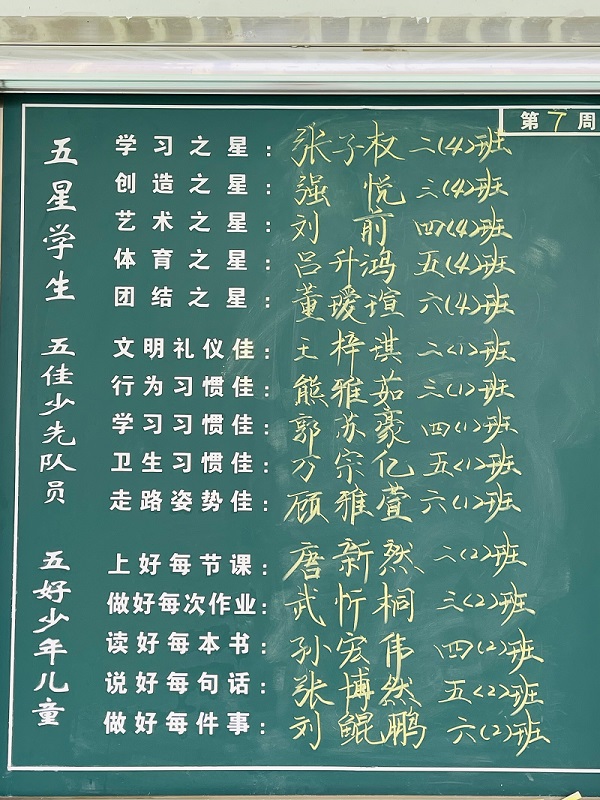 第7周
五星学生
学习之星：张子权 二(4)班
创造之星：强悦 三(4)班
艺术之星：刘前 四(4)班
体育之星：吕升鸿 五(4)班
团结之星：董瑷瑄 六(4)班
五佳少先队员
文明礼仪佳：王梓淇 二(1)班
行为习惯佳：熊雅茹 三(1)班
学习习惯佳：郭苏豪 四(1)班
卫生习惯佳：万宗亿 五(1)班
走路姿势佳：顾雅萱 六(1)班
五好少年儿童
上好每节课：唐新然 二(2)班
做好每次作业：武忻桐 三(2)班
读好每本书：孙宏伟 四(2)班
说好每句话：张博然 五(2)班
做好每件事：刘鲲鹏 六(2)班